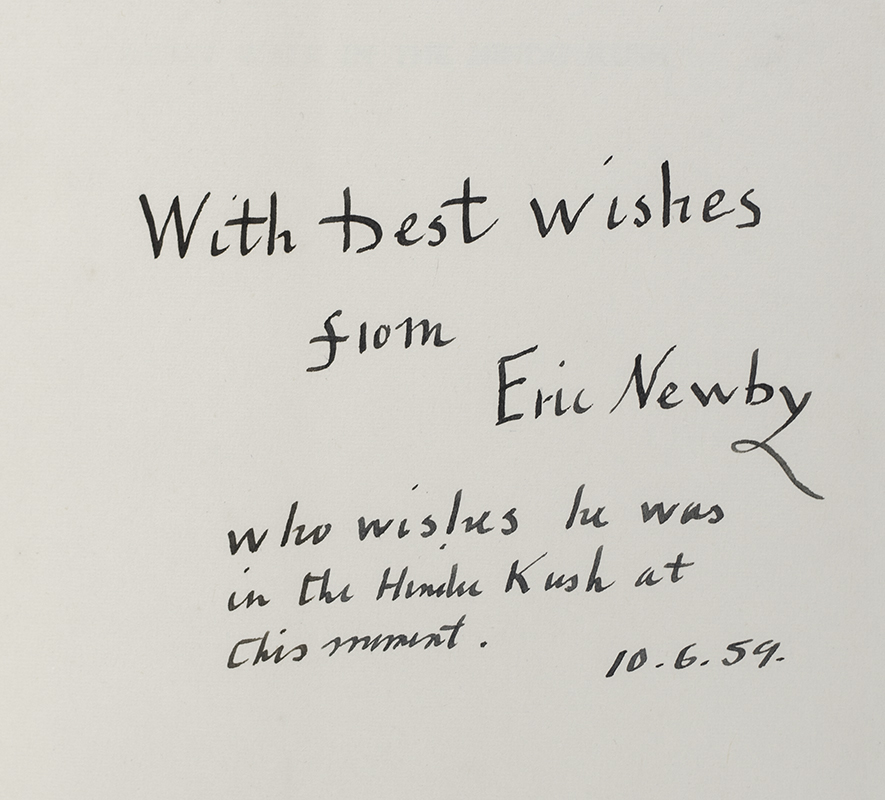 With best wishes
from
Eric Newby
who wishes he was
in the Hindu Kush at
this moment.
10.6.59.